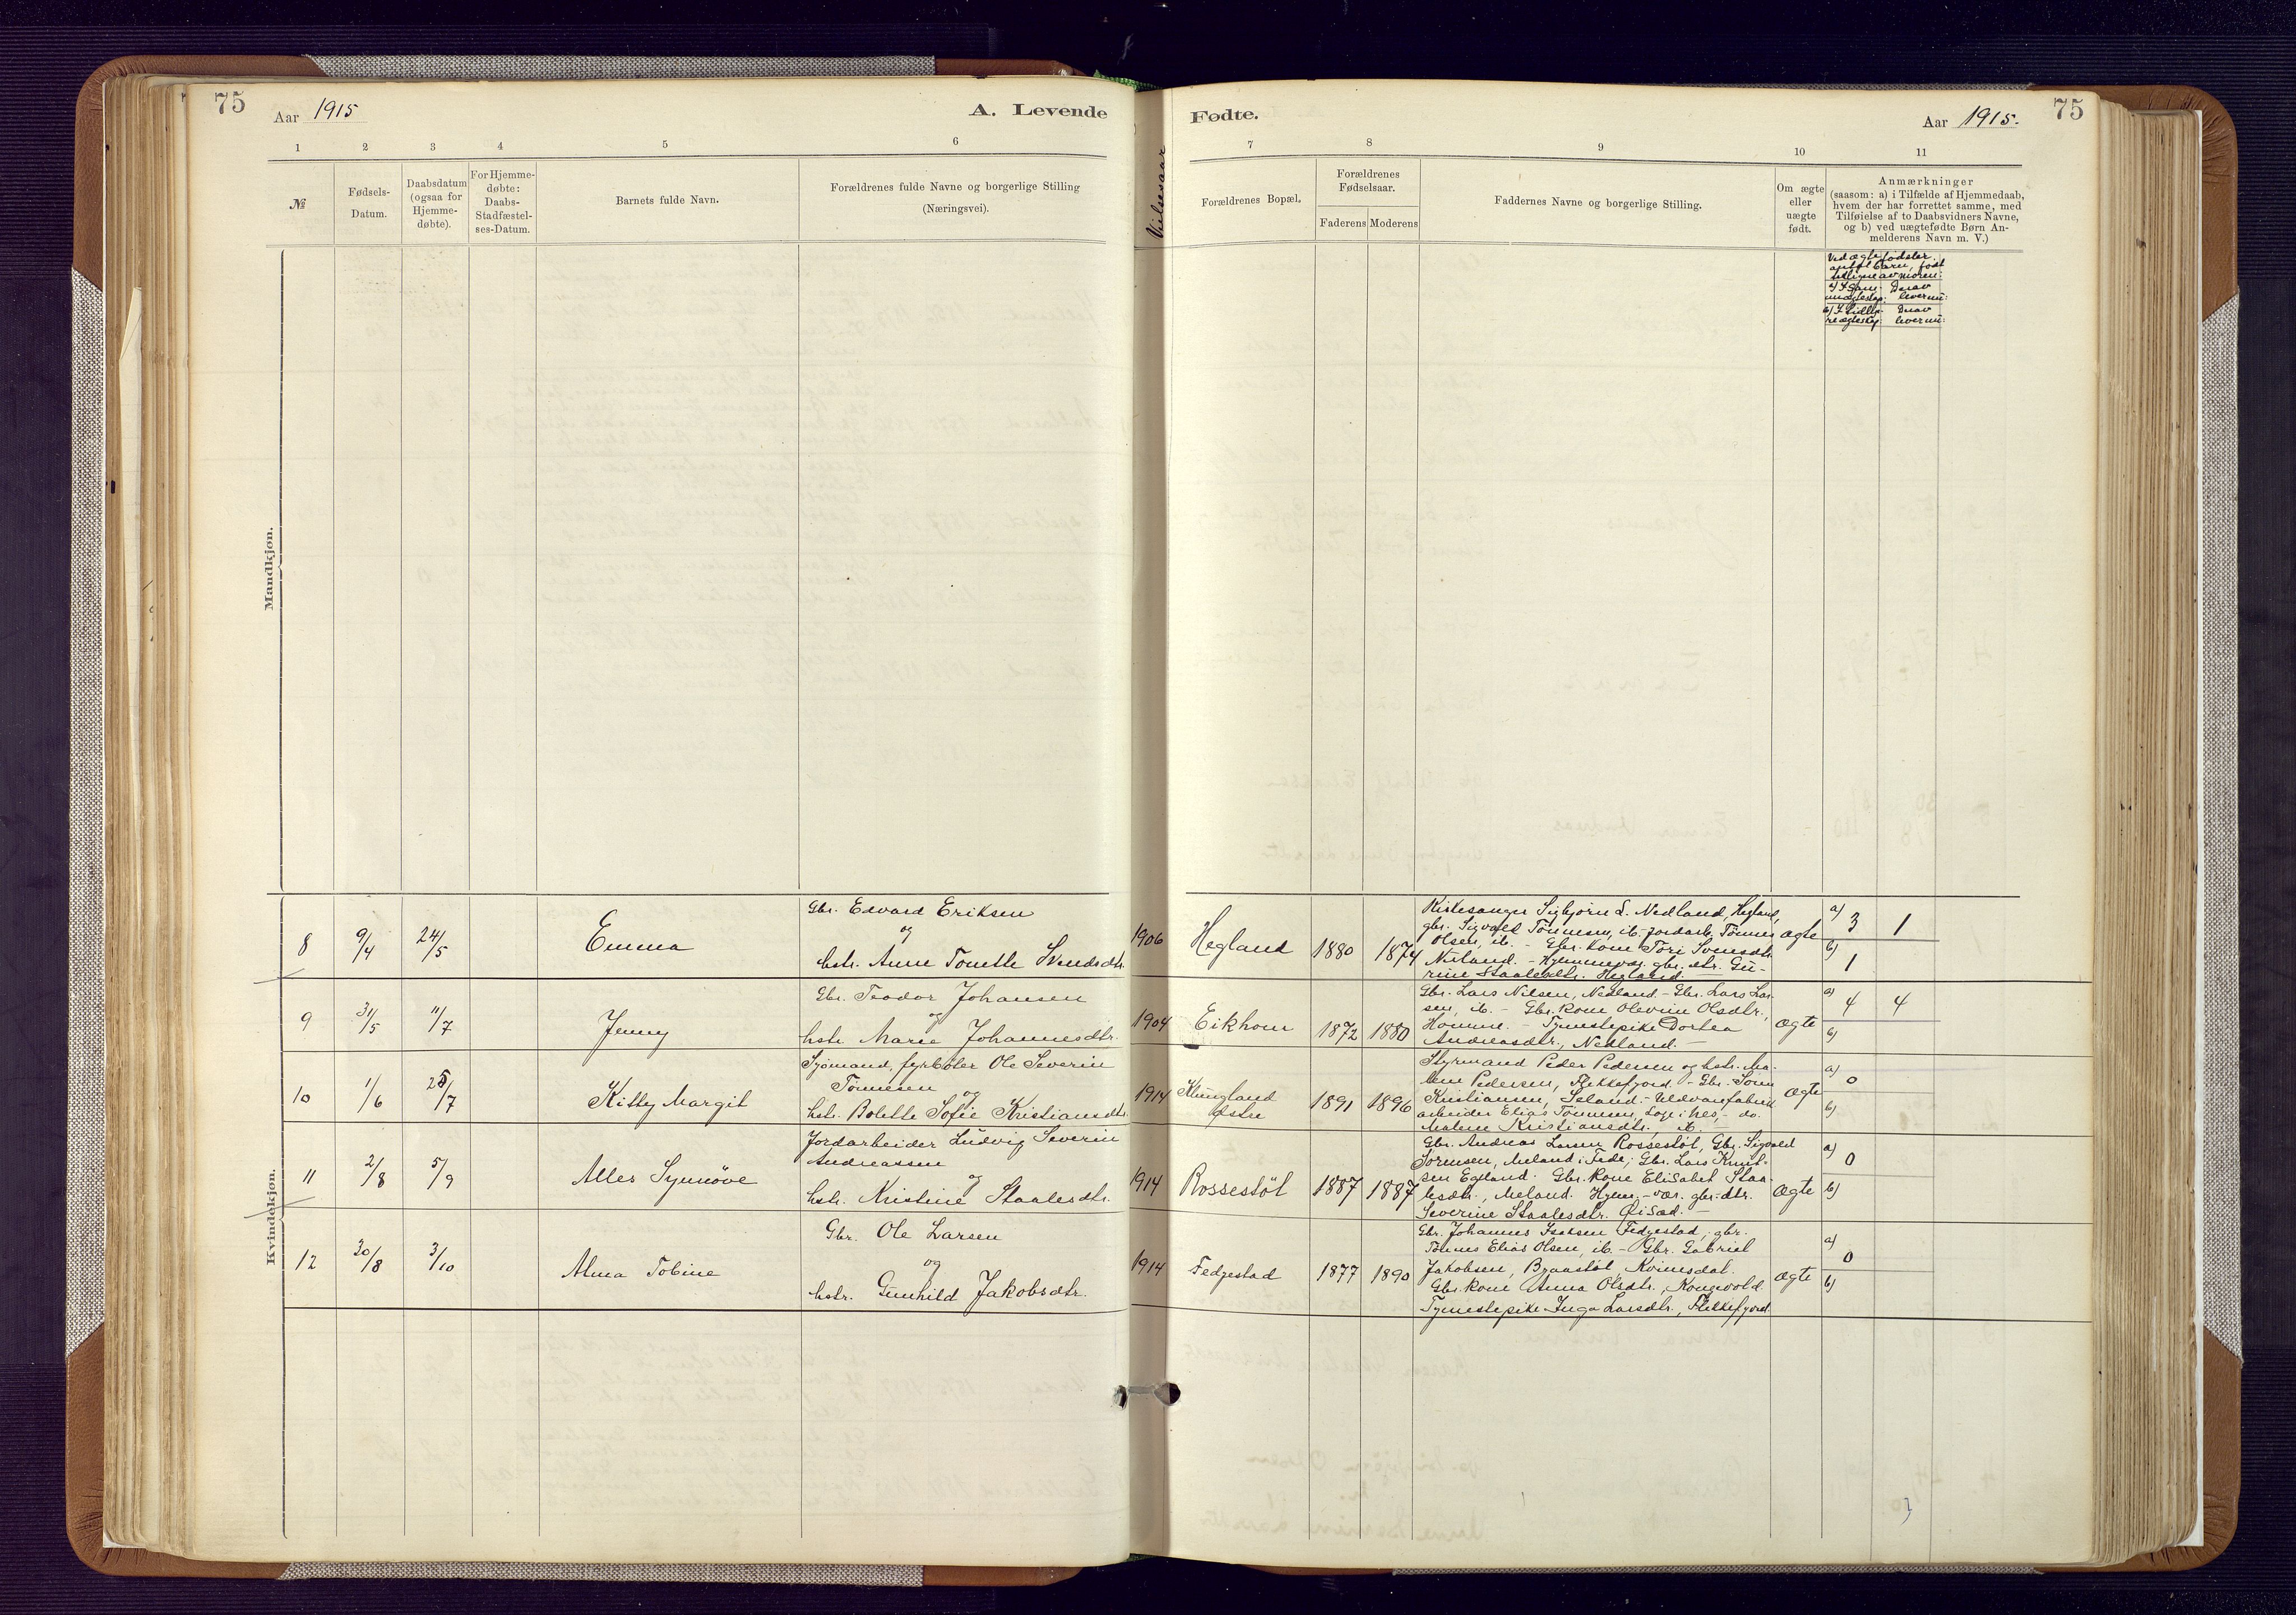 75
Aar 1915
A. Levende
Fødte.
Aar 1915.
75
1 2 3 4 5 6 7 8 9 10 11
№
Fødsels-
Datum.
Daabsdatum
(ogsaa for
Hjemme-
døbte).
For Hjemme-
døbte:
Daabs-
Stadfæstel-
ses-Datum.
Barnets fulde Navn.
Forældrenes fulde Navne og borgerlige Stilling
(Næringsvei).
Vielsesaar
Forældrenes Bopæl.
Forældrenes
Fødselsaar.
Faderens Moderens
Faddernes Navne og borgerlige Stilling.
Om ægte
eller
uægte
født.
Anmærkninger
(saasom: a) i Tilfælde af Hjemmedaab,
hvem der har forrettet samme, med
Tilføielse af to Daabsvidners Navne,
og b) ved uægtefødte Børn An-
melderens Navn m. V.)
Ved ægtefødsler
antal barn, født
tidligere av moren:
Derav
lever nu:
Derav
lever nu:
Mandkjøn.
Kvindekjøn.
8
9/4
24/5
Emma
Gbr. Edvard Eriksen
og
hstr. Anne Tonette Svendsdtr.
1906
Hegland
1880
1874
Kirkesanger Sigbjørn S. Nedland, Hegland,
gbr. Sigvald Tønnesen, ib. jordarb. Tønnes
Olsen, ib. - Gbr. kone Tori Svensdtr.
Nuland. - Hjemmevær. gbr. dtr. Gu-
rine Staalesdtr. Hegland. -
ægte
a) 3 1
b) 1
9
31/5
11/7
Jenny
Gbr. Teodor Johansen
og
hstr. Marie Johannesdtr.
1904
Eikhom
1872
1880
Gbr. Lars Nilsen, Nedland. - Gbr. Lars Lar-
sen, ib. - Gbr. kone Olevine Olsdtr.,
Homme. - Tjenestepike Dortea
Andreasdtr., Nedland. -
ægte
a) 4 4
b)
10
1/6
25/7
Kitty Margit
Sjømand, fyrbøter Ole Severin
Tønnesen
og
hstr. Bolette Sofie Kristiansdtr.
1914
Klungland
østre
1891
1896
Styrmand Peder Pedersen og hstr. Ma-
lene Pedersen, Flekkefjord. - Gbr. Søren
Kristiansen, Seland. - Uldvarefabrik
arbeider Elias Tønnesen, Loge i Nes, - do.
Malene Kristiansdtr., ib. -
ægte
a) 0
b)
11
2/8
5/9
Alles Synnöve
Jordarbeider Ludvig Severin
Andreassen
og
hstr. Kristine Staalesdtr.
1914
Rossestøl
1887
1887
Gbr. Andreas Larsen Rossestøl, Gbr. Sigvald
Sørensen, Meland i Fede; Gbr. Lars Knut-
sen Egeland. Gbr. kone Elisabet Staa-
lesdtr., Meland. Hjem.-vær. gbr.-dtr.
Severine Staalesdtr. Øisæd. -
ægte
a) 0
b)
12
30/8
3/10
Alma Tobine
Gbr. Ole Larsen
og
hstr. Gunhild Jakobsdtr.
1914
Fedgestad
1877
1890
Gbr. Johannes Isaksen Fedgestad, gbr.
Tønnes Elias Olsen, ib. - Gbr. Gabriel
Jakobsen, Braastøl, Kvinesdal.
Gbr. kone Anna Olsdtr., Kongevold.
Tjenestepike Inga Larsdtr., Flekkefjord.
ægte
a) 0
b)